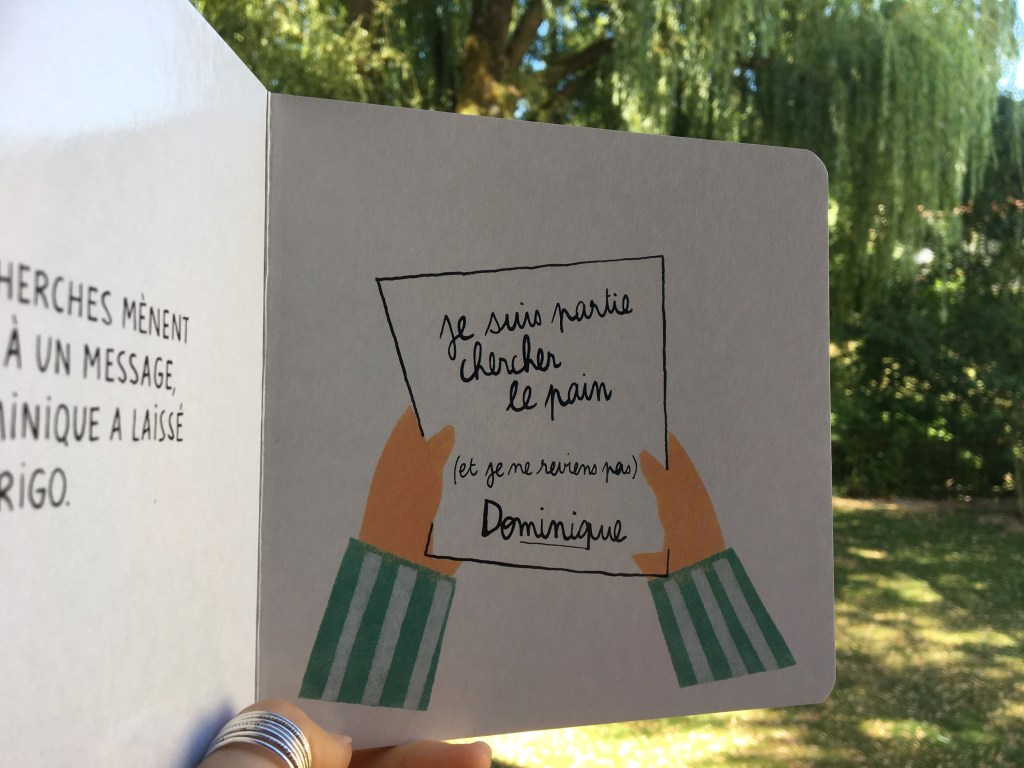 HERCHES MÈNENT
À UN MESSAGE,
MINIQUE A LAISSÉ
RIGO.
je suis partie
chercher
le pain
(et je ne reviens pas)
Dominique